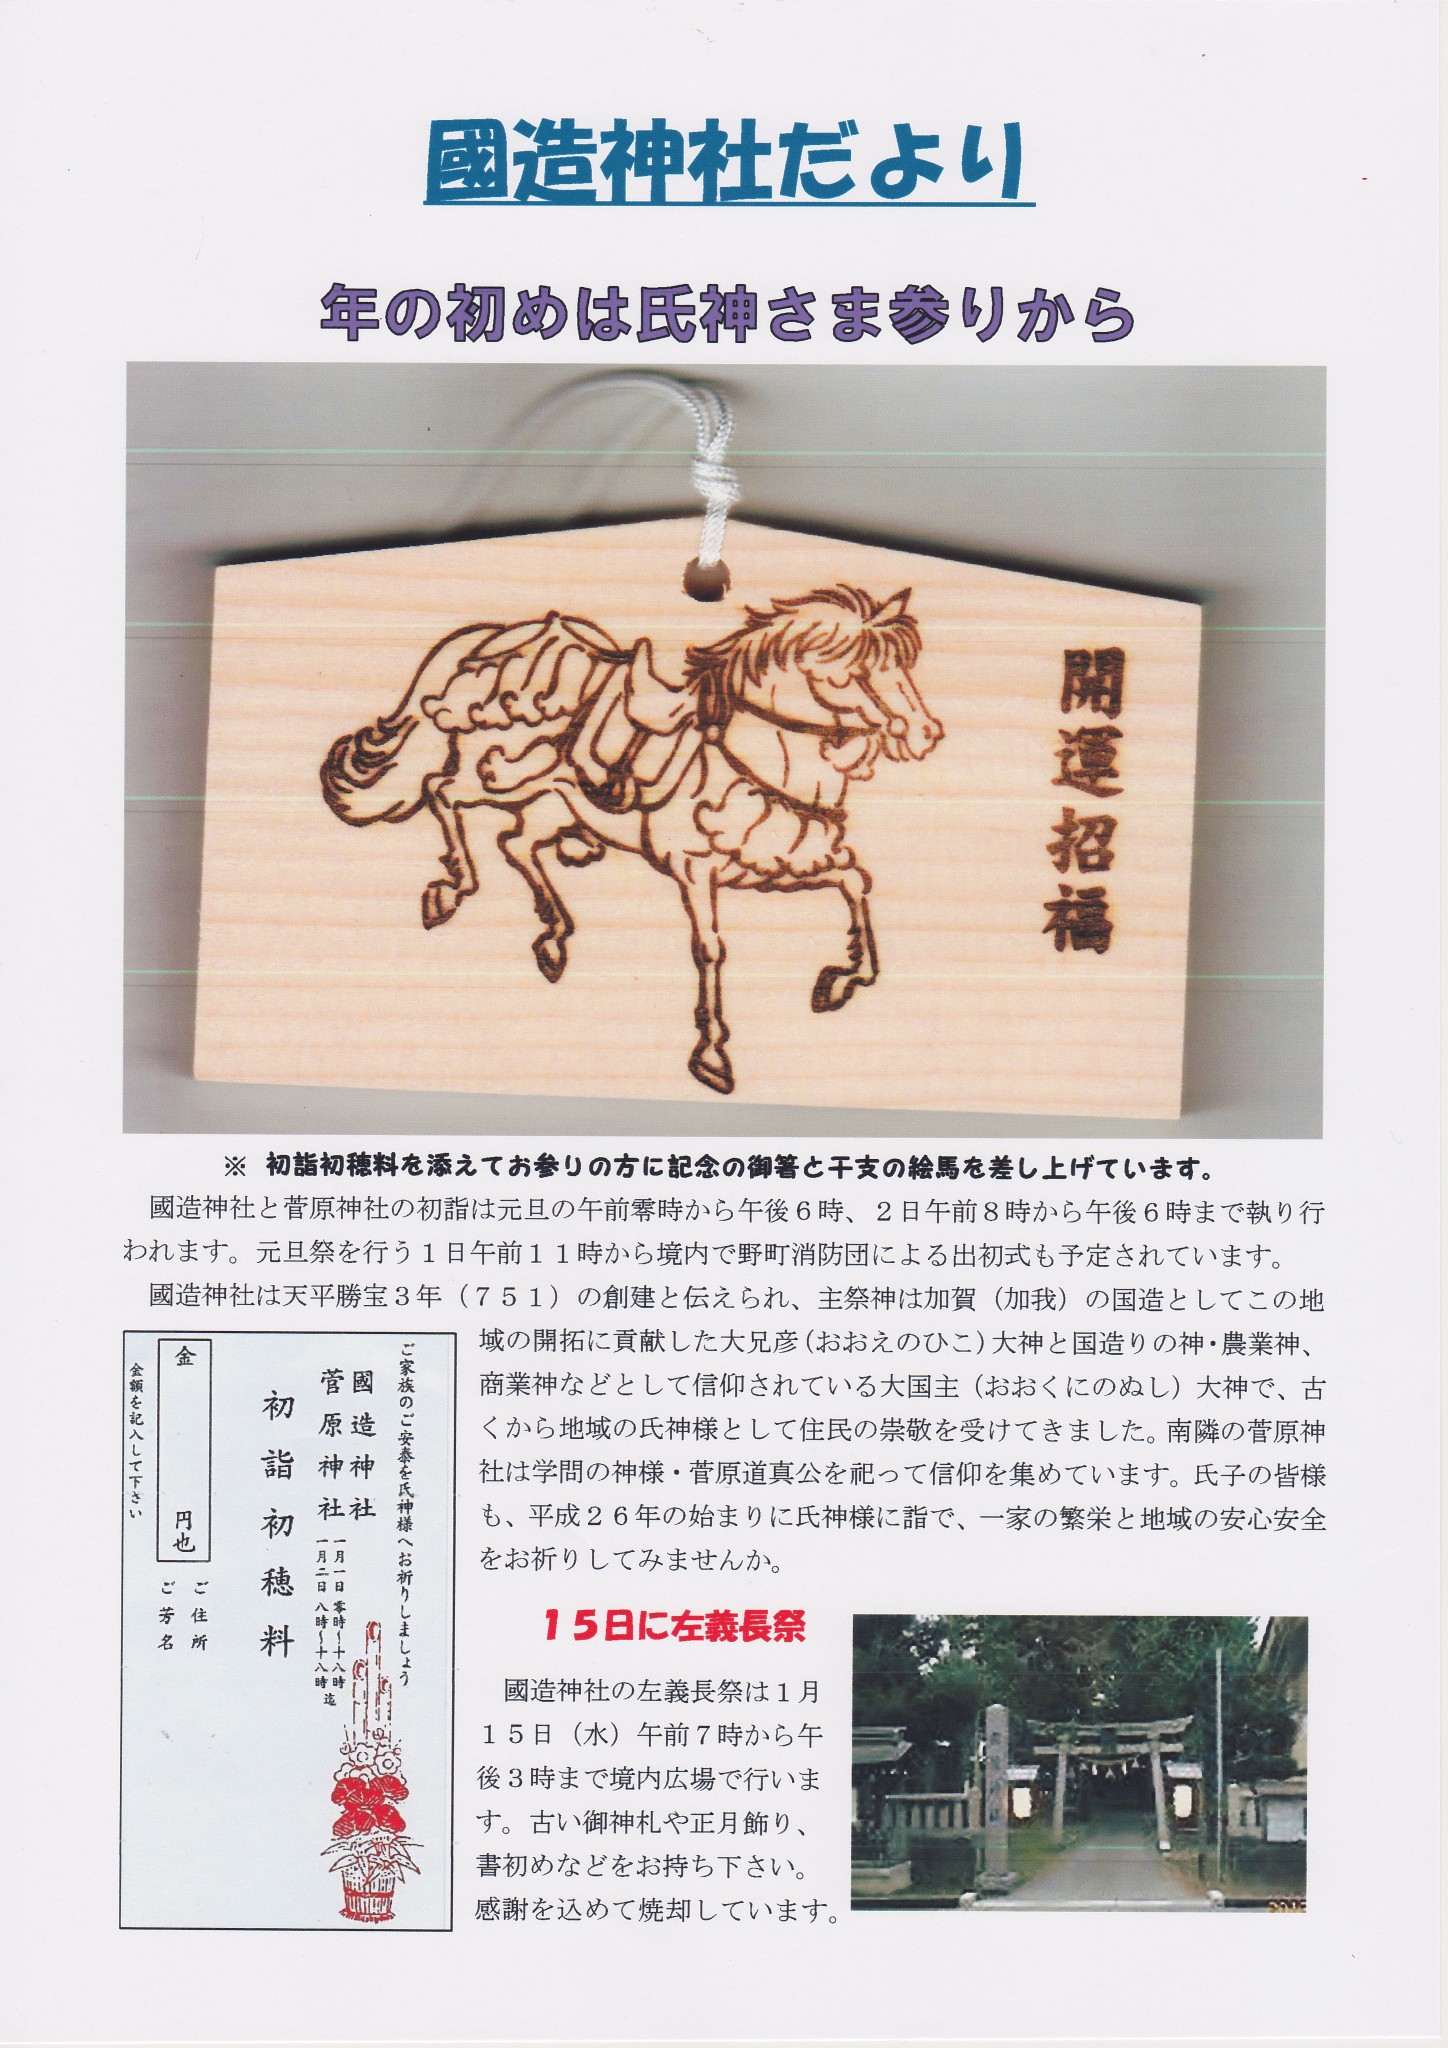 國造神社だより
年の初めは氏神さま参りから
開運招福
※ 初詣初穂料を添えてお参りの方に記念の御箸と干支の絵馬を差し上げています。
國造神社と菅原神社の初詣は元旦の午前零時から午後６時、２日午前８時から午後６時まで執り行
われます。元旦祭を行う１日午前１１時から境内で野町消防団による出初式も予定されています。
國造神社は天平勝宝３年（７５１）の創建と伝えられ、主祭神は加賀（加我）の国造としてこの地
域の開拓に貢献した大兄彦（おおえのひこ）大神と国造りの神・農業神、
商業神などとして信仰されている大国主（おおくにのぬし）大神で、古
くから地域の氏神様として住民の崇敬を受けてきました。南隣の菅原神
社は学問の神様・菅原道真公を祀って信仰を集めています。氏子の皆様
も、平成２６年の始まりに氏神様に詣で、一家の繁栄と地域の安心安全
をお祈りしてみませんか。
ご家族のご安泰を氏神様へお祈りしましょう
國造神社
菅原神社
一月一日 零時〜十八時
一月二日 八時〜十八時
迄
初詣初穂料
ご住所
ご芳名
金 円也
金額を記入して下さい
１５日に左義長祭
國造神社の左義長祭は１月
１５日（水）午前７時から午
後３時まで境内広場で行いま
す。古い御神札や正月飾り、
書初めなどをお持ち下さい。
感謝を込めて焼却しています。